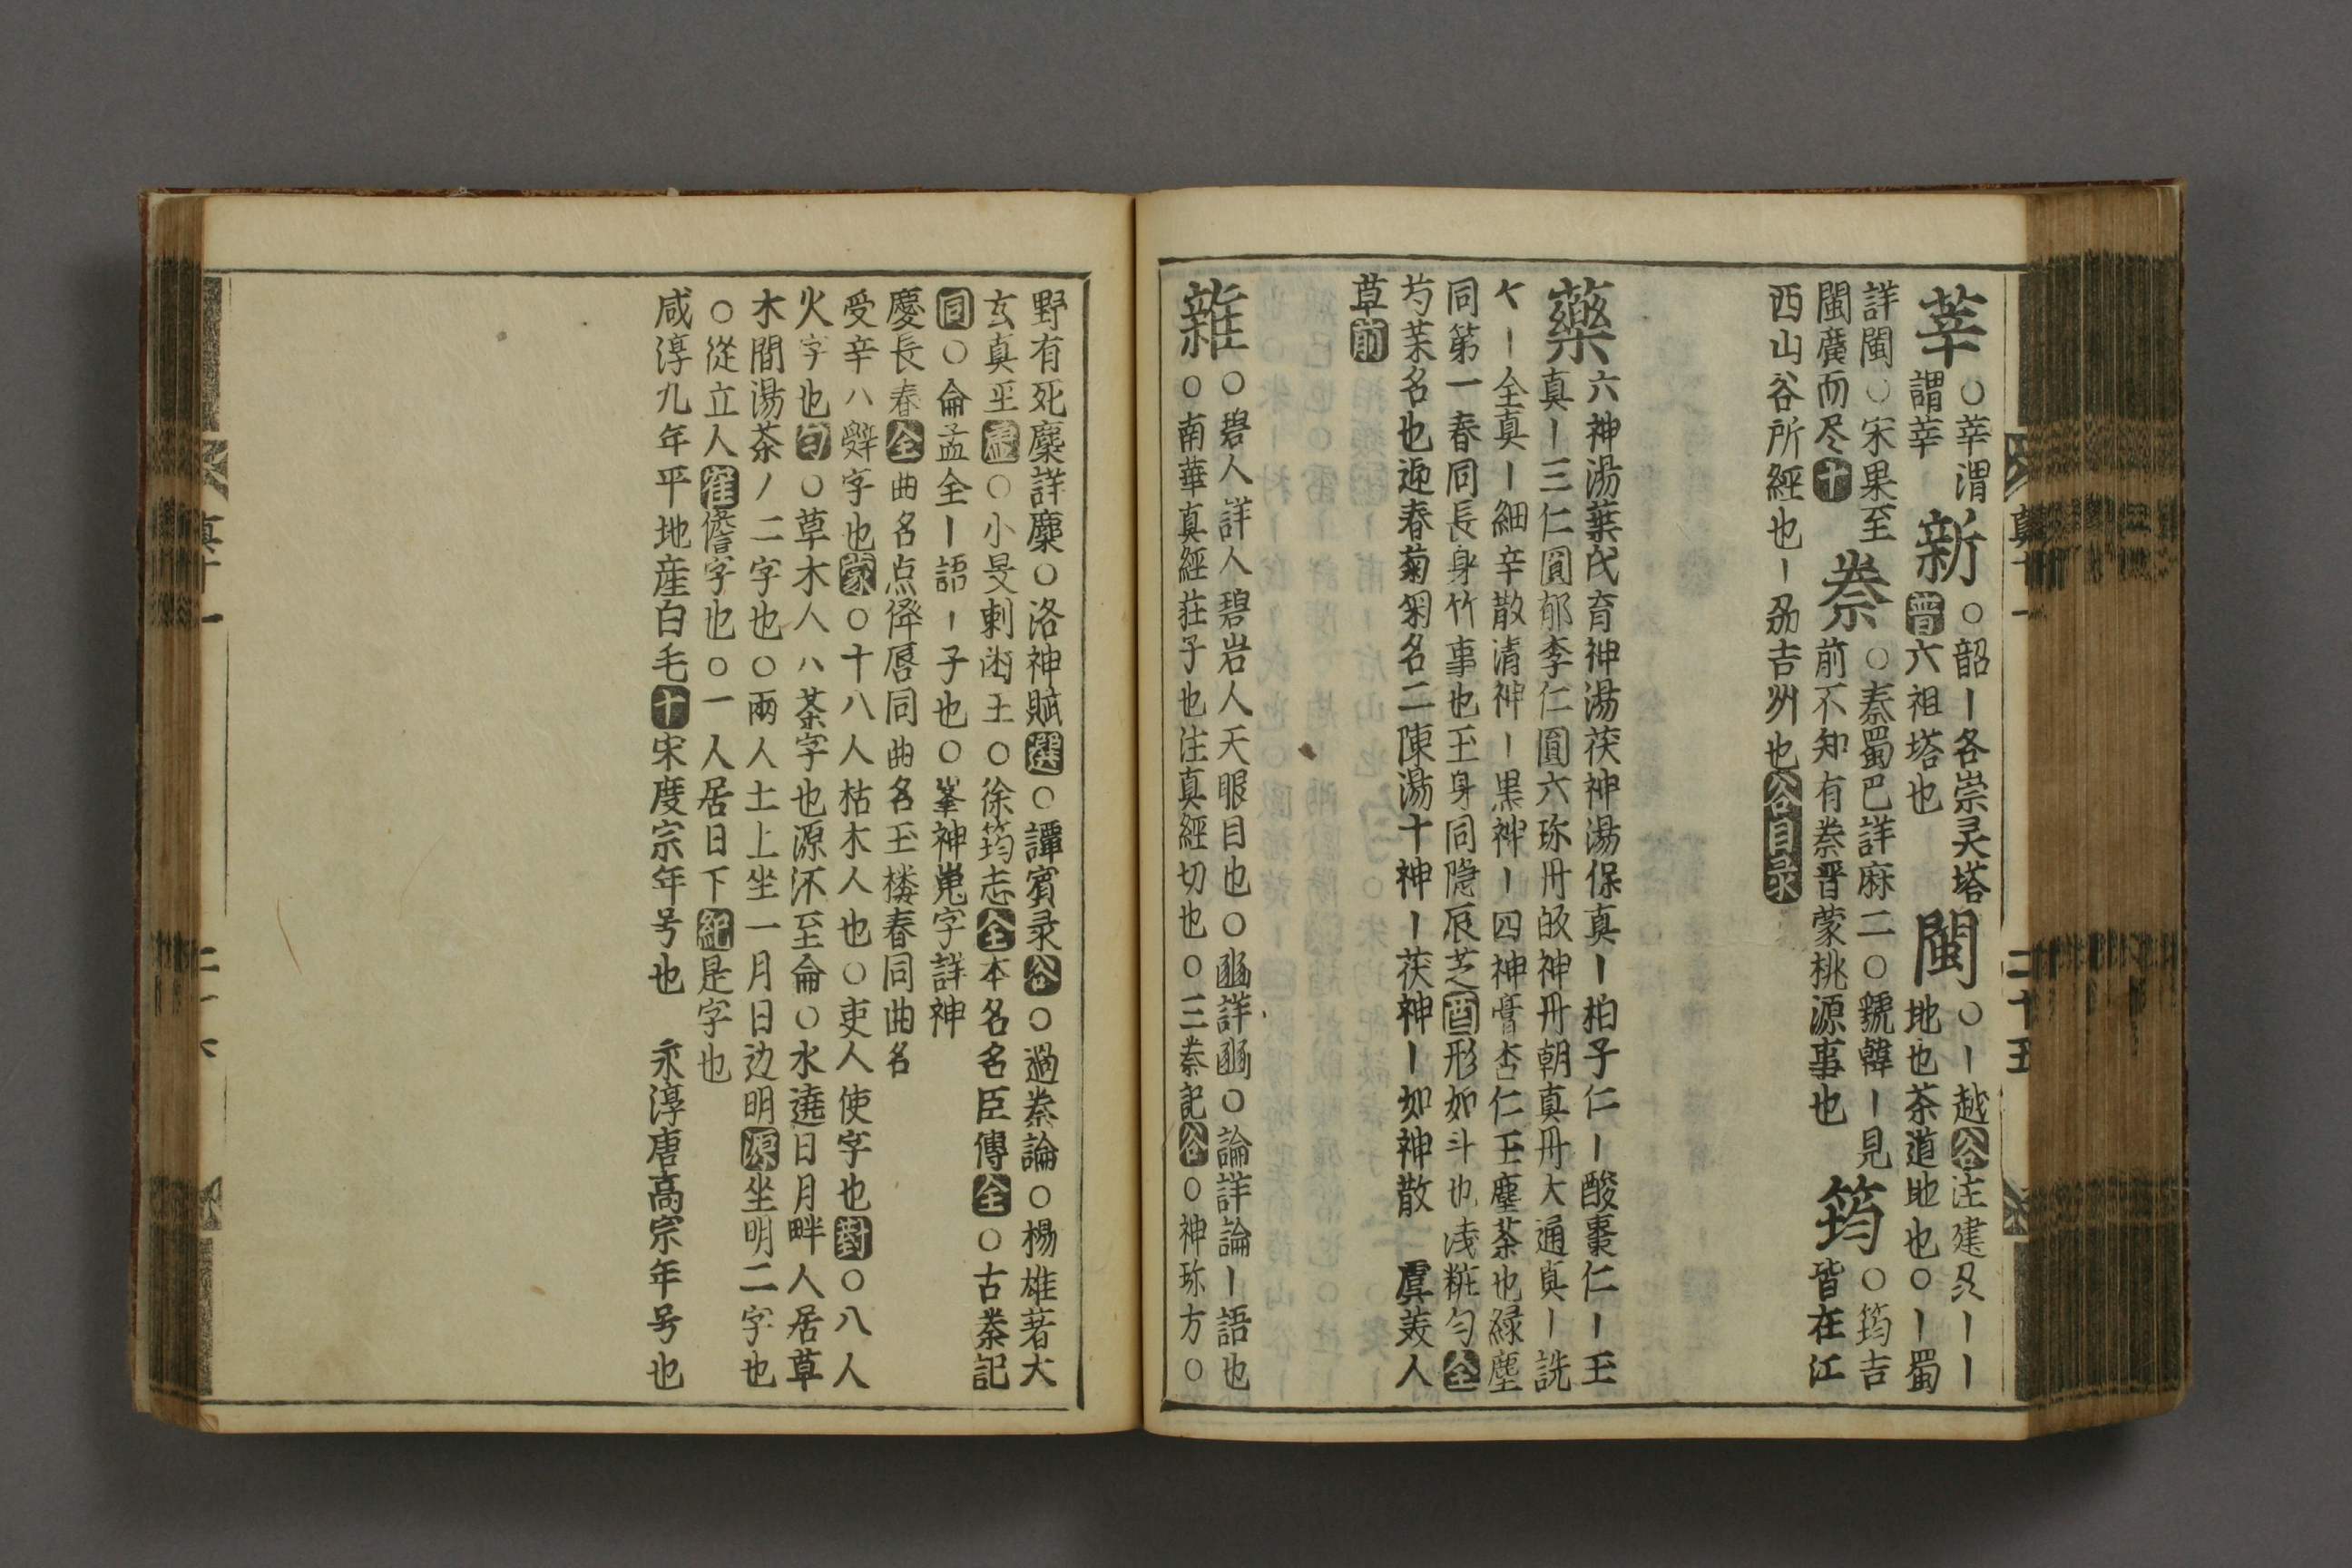 莘○莘渭
謂莘｜
新○韶｜各崇灵塔
晋六祖塔也
閩○｜越谷注建㕛｜｜
地也茶道地也○｜蜀
詳閩○宋果至
閩廣而尽十
秦○秦蜀巴詳麻二○虢韓｜見
前不知有秦晋蒙桃源事也
筠○筠吉
皆在江
西山谷所經也｜劦吉州也谷目录
藥六神湯葉氏育神湯茯神湯保真｜柏子仁｜酸棗仁｜王
真｜三仁圓郁李仁圓六珎丹 神丹朝真丹大通真｜詵
｜全真｜細辛散清神｜黒神｜四神膏杏仁玉塵茶也緑塵
同第一春同長身竹事也玉身同隐辰芝酉形如斗也浅粧匀全
芍茱名也迎春菊菊名二陳湯十神｜茯神｜如神散 虞美人
草前
雜○碧人詳人碧岩人天眼目也○ 詳 ○論詳論｜語也
○南華真經荘子也注真經切也○三秦記谷○神珎方○
野有死麋詳麋○洛神賦選○譚賓录谷○過秦論○楊雄著大
玄真 虚○小旻刺幽王○徐筠志全本名名臣傳全○古秦記
同○侖孟全｜語｜子也○峯神嵬字詳神
慶長春全曲名点絳唇同曲名玉楼春同曲名
受辛八辤字也蒙○十八人枯木人也○吏人使字也對○八人
火字也句○草木人八茶字也源 至侖○水遶日月畔人居草
木間湯茶ノ二字也○兩人土上坐一月日边明源坐明二字也
○從立人崔 字也○一人居日下紀是字也
咸淳九年平地産白毛十宋度宗年号也 永淳唐高宗年号也
真十一
二十五